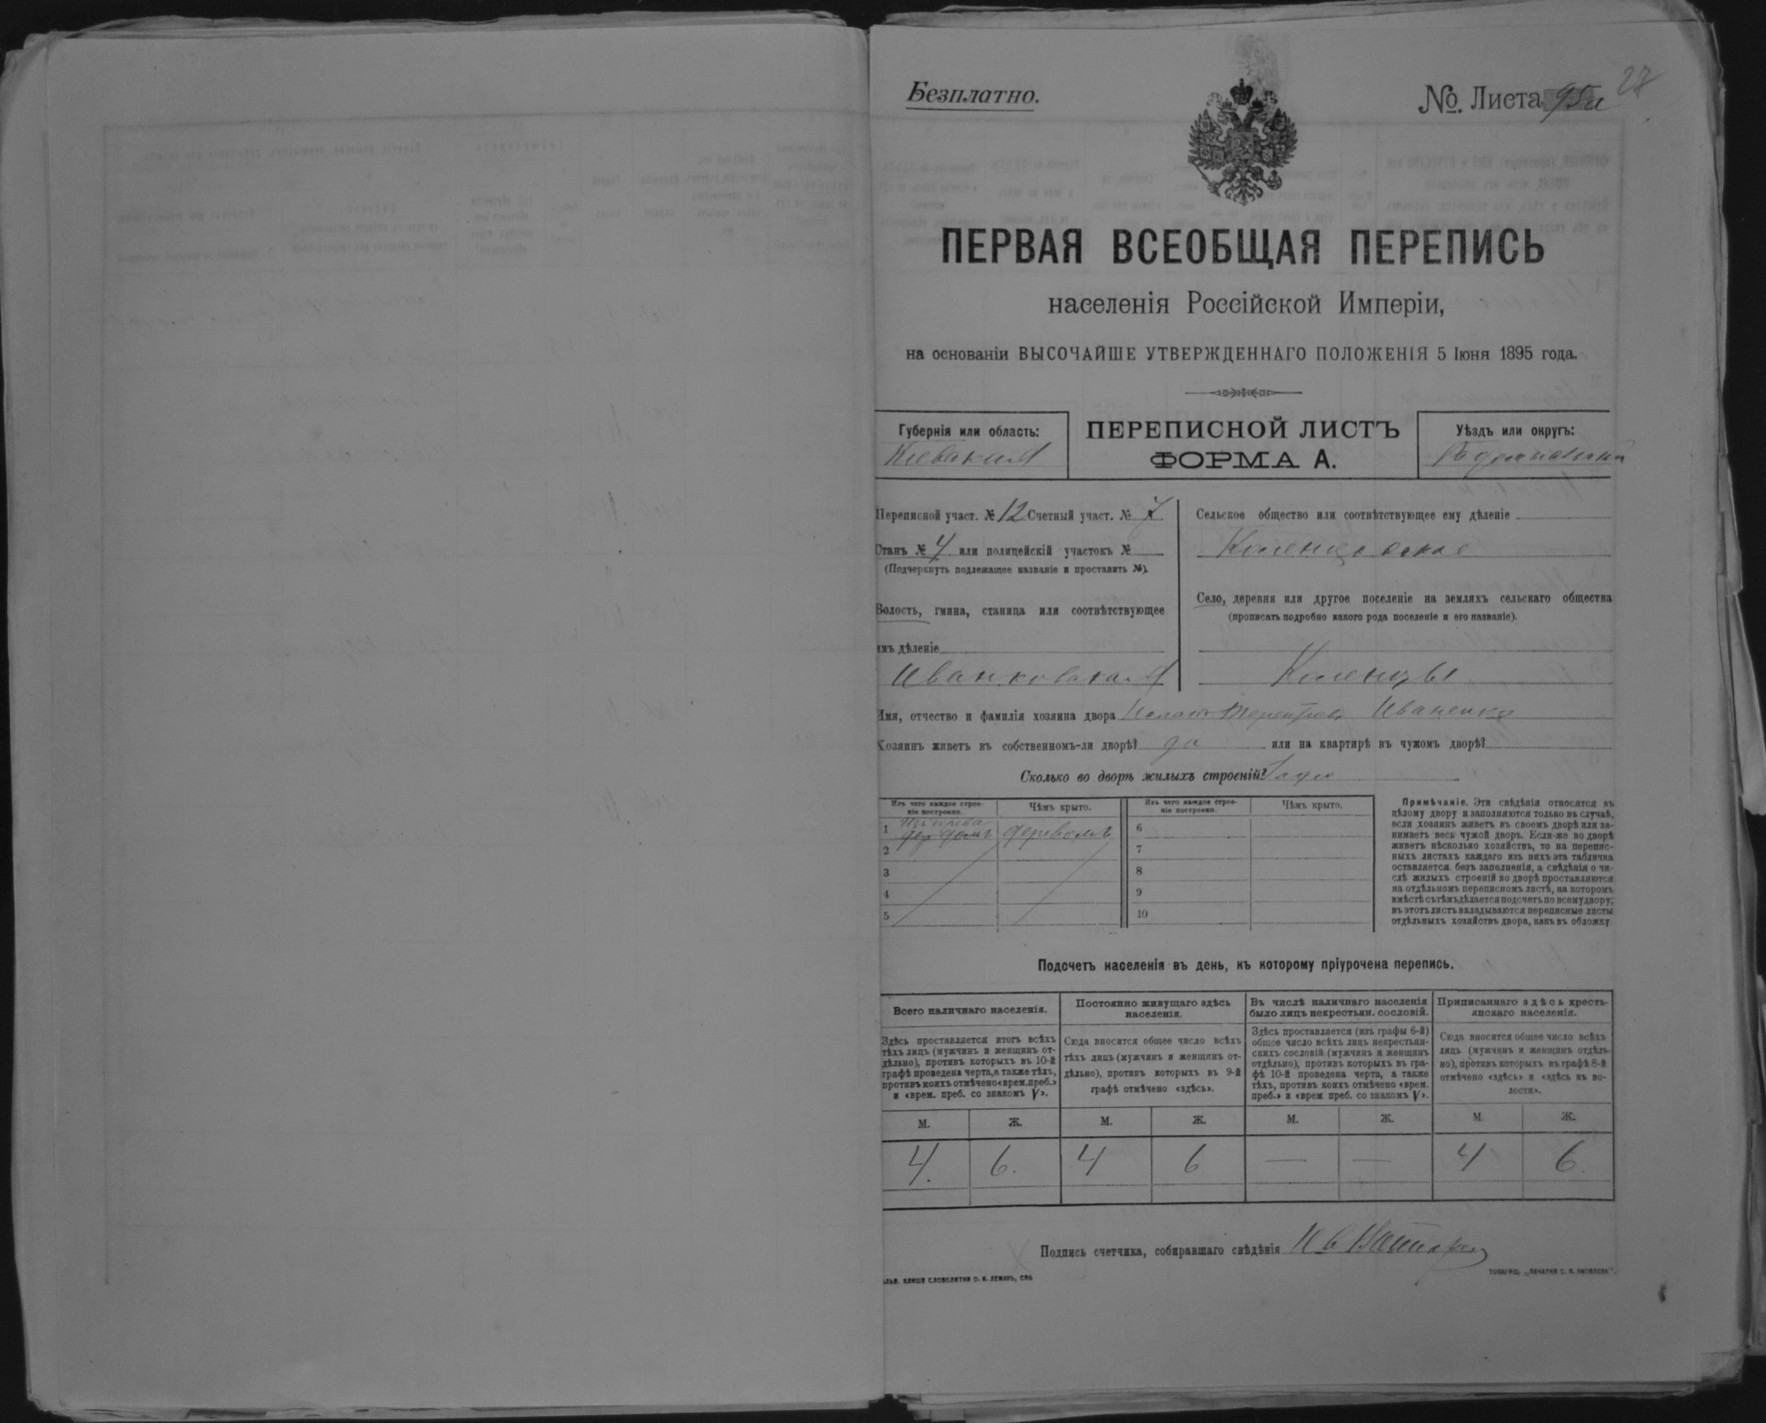 Безплатно.
№. Листа 28
ПЕРВАЯ ВСЕОБЩАЯ ПЕРЕПИСЬ
населенія Россійской Имперіи,
на основаніи ВЫСОЧАЙШЕ УТВЕРЖДЕННАГО ПОЛОЖЕНІЯ 5 Іюня 1895 года.
Губернія или область:
Кіевская
ПЕРЕПИСНОЙ ЛИСТЪ
ФОРМА А.
Уѣздъ или округъ:
Радомысльскій
Переписной участ. № 12 Счетный участ. № 7
Станъ № 4 или полицейскій участокъ №
(Подчеркнуть подлежащее названіе и проставить №).
Волость, гмина, станица или соотвѣтствующее
имъ дѣленіе
Иванковская
Сельское общество или соотвѣтствующее ему дѣленіе
Коленцовское
Село, деревня или другое поселеніе на земляхъ сельскаго общества
(прописать подробно какого рода поселеніе и его названіе).
Коленцы
Имя, отчество и фамилія хозяина двора Иваненко
Хозяинъ живетъ въ собственномъ-ли дворѣ? да или на квартирѣ въ чужомъ дворѣ?
Сколько во дворѣ жилыхъ строеній?
Изъ чего каждое строе-
ніе построено.
Чѣмъ крыто.
Изъ чего каждое строе-
ніе построено.
Чѣмъ крыто.
1 Изъ дерева
домъ деревомъ
2
3
4
5
6
7
8
9
10
Примѣчаніе. Эти свѣдѣнія относятся къ
цѣлому двору и заполняются только въ случаѣ,
если хозяинъ живетъ въ своемъ дворѣ или за-
нимаетъ весь чужой дворъ. Если-же во дворѣ
живетъ нѣсколько хозяйствъ, то на перепис-
ныхъ листахъ каждаго изъ нихъ эта табличка
оставляется безъ заполненія, а свѣдѣнія о чи-
слѣ жилыхъ строеній во дворѣ проставляются
на отдѣльномъ переписномъ листѣ, на которомъ
вмѣстѣ съ тѣмъ дѣлается подсчетъ по всему двору;
въ этотъ листъ вкладываются переписные листы
отдѣльныхъ хозяйствъ двора, какъ въ обложку.
Подсчетъ населенія въ день, къ которому пріурочена перепись.
Всего наличнаго населенія.
Здѣсь проставляется итогъ всѣхъ
тѣхъ лицъ (мужчинъ и женщинъ от-
дѣльно), противъ которыхъ въ 10-й
графѣ проведена черта, а также тѣхъ,
противъ коихъ отмѣчено «врем. преб.»
и «врем. преб. со знакомъ V».
Постоянно живущаго здѣсь
населенія.
Сюда вносится общее число всѣхъ
тѣхъ лицъ (мужчинъ и женщинъ от-
дѣльно), противъ которыхъ въ 9-й
графѣ отмѣчено «здѣсь».
Въ числѣ наличнаго населенія
было лицъ некрестьян. сословій.
Здѣсь проставляется (изъ графы 6-й)
общее число всѣхъ лицъ некрестьян-
скихъ сословій (мужчинъ и женщинъ
отдѣльно), противъ которыхъ въ гра-
фѣ 10-й проведена черта, а также
тѣхъ, противъ коихъ отмѣчено «врем.
преб.» и «врем. преб. со знакомъ V».
Приписаннаго здѣсь кресть-
янскаго населенія.
Сюда вносится общее число всѣхъ
лицъ (мужчинъ и женщинъ отдѣль-
но), противъ которыхъ въ графѣ 8-й
отмѣчено «здѣсь» и «здѣсь въ во-
лости».
М. Ж. М. Ж. М. Ж. М. Ж.
4. 6. 4 6 — — 4 6
Подпись счетчика, собиравшаго свѣдѣнія
СЛОВОЛИТНИ О. И. ЛЕМАНЪ, СПБ
ТОВАРИЩ. „ПЕЧАТНЯ С. П. ЯКОВЛЕВА“.